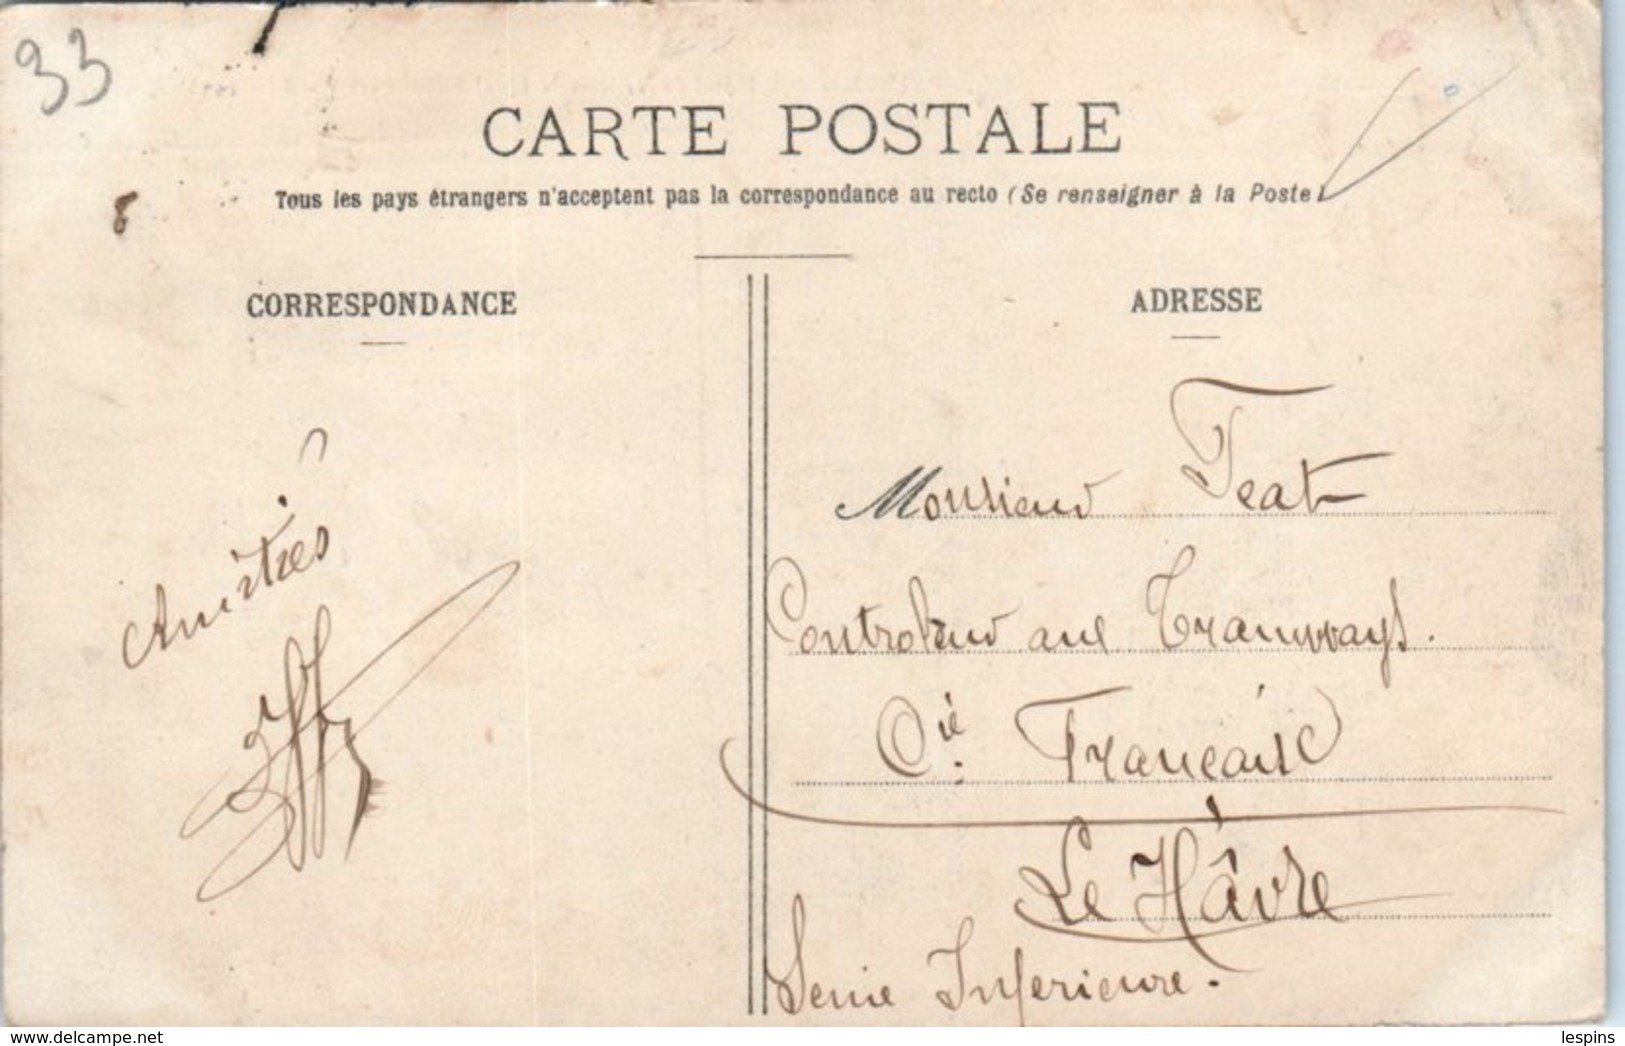 33
CARTE POSTALE
Tous les pays étrangers n'acceptent pas la correspondance au recto (Se renseigner à la Poste)
CORRESPONDANCE
Amitiés
ADRESSE
Monsieur Feat
Controleur aux Tramways.
Cie. Française
Le Hâvre
Seine Inferieure.
www.delcampe.net
lespins